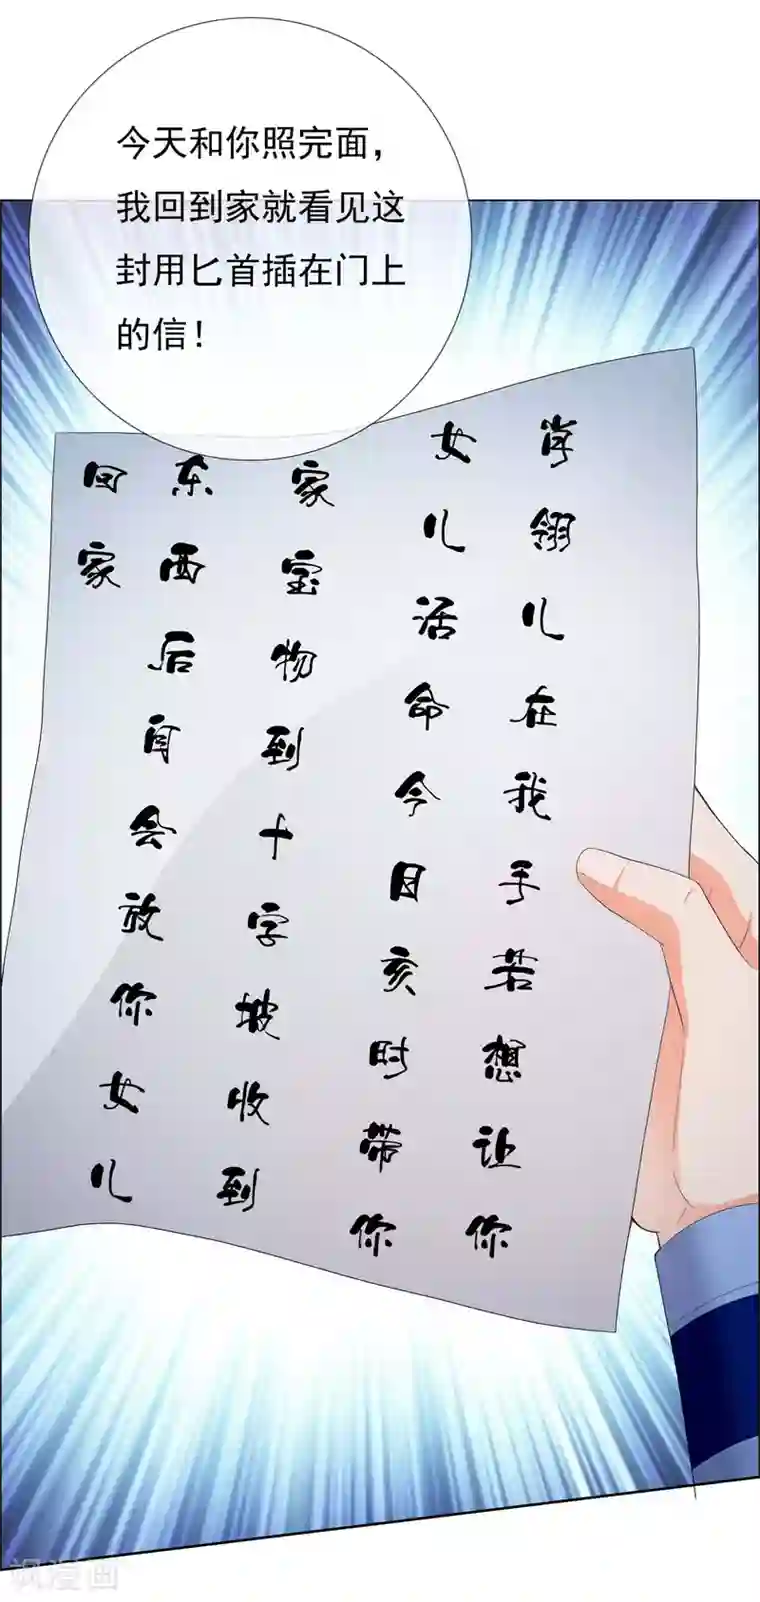 今天和你照完面，
我回到家就看见这
封用匕首插在门上
的信！
肖翎儿在我手若想让你
女儿活命今日亥时带你
家宝物到十字坡收到
东西后自会放你女儿
回家
飒漫画